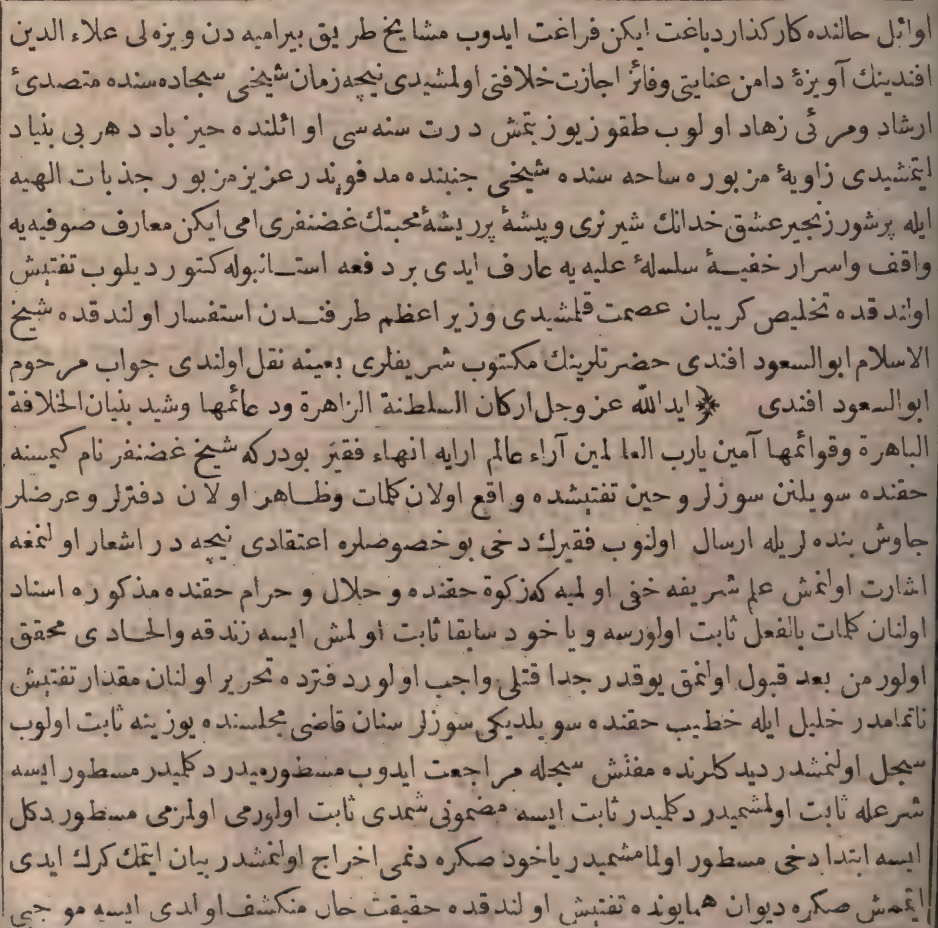 اوائل حالنده كاركذار دباغت ايكن فراغت ايدوب مشايخ طريق بيراميه دن ويزه لى علاء الدين
افندينك آويزهٔ دامن عنايتى وفائز اجازت خلافتى اولمشيدى نيچه زمان شيخى سجاده سنده متصدئ
ارشاد ومرئى زهاد اولوب طقوز يوز يتمش درت سنه سى اوائلنده حيز باد دهر بى بنياد
ايتمشيدى زاويهٔ مزبوره ساحه سنده شيخى جنبنده مدفوندر عزيز مزبور جذبات الهيه
ايله پرشور زنجير عشق خدانك شير نرى وپيشهٔ پرريشهٔ محبتك غضنفرى امى ايكن معارف صوفيه يه
واقف واسرار خفيهٔ سلسلهٔ عليه يه عارف ايدى بر دفعه استانبوله كتورديلوب تفتيش
اولندقده تخليص كريبان عصمت قلمشيدى وزير اعظم طرفندن استفسار اولندقده شيخ
الاسلام ابو السعود افندى حضرتلرينك مكتوب شريفلرى بعينه نقل اولندى جواب مرحوم
ابو السعود افندى ﴿ ايد الله عز وجل اركان السلطنة الزاهرة ودعائمها وشيد بنيان الخلافة
الباهرة وقوائمها آمين يارب العالمين آراء عالم ارايه انهاء فقير بودركه شيخ غضنفر نام كيمسنه
حقنده سويلنن سوزلر وحين تفتيشده واقع اولان كلمات وظاهر اولان دفترلر وعرضلر
جاوش بنده لريله ارسال اولنوب فقيرك دخى بو خصوصلره اعتقادى نيجه در اشعار اولنمغه
اشارت اولنمش علم شريفه خفى اولميه كه زكوة حقنده وحلال وحرام حقنده مذكوره اسناد
اولنان كلمات بالفعل ثابت اولورسه ويا خود سابقا ثابت اولمش ايسه زندقه والحادى محقق
اولور من بعد قبول اولنمق يوقدر جدا قتلى واجب اولور دفترده تحرير اولنان مقدار تفتيش
ناتمامدر خليل ايله خطيب حقنده سويلديكى سوزلر سنان قاضى مجلسنده يوزينه ثابت اولوب
سجل اولنمشدر ديدكلرنده مفتش سجله مراجعت ايدوب مسطورميدر دكليدر مسطور ايسه
شرعله ثابت اولمشميدر دكليدر ثابت ايسه مضمونى شمدى ثابت اولورمى اولمزمى مسطور دكل
ايسه ابتدا دخى مسطور اولمامشميدر ياخود صكره دنمى اخراج اولنمشدر بيان ايتمك كرك ايدى
ايتمش صكره ديوان همايونده تفتيش اولندقده حقيقت حال منكشف اولدى ايسه موجبى